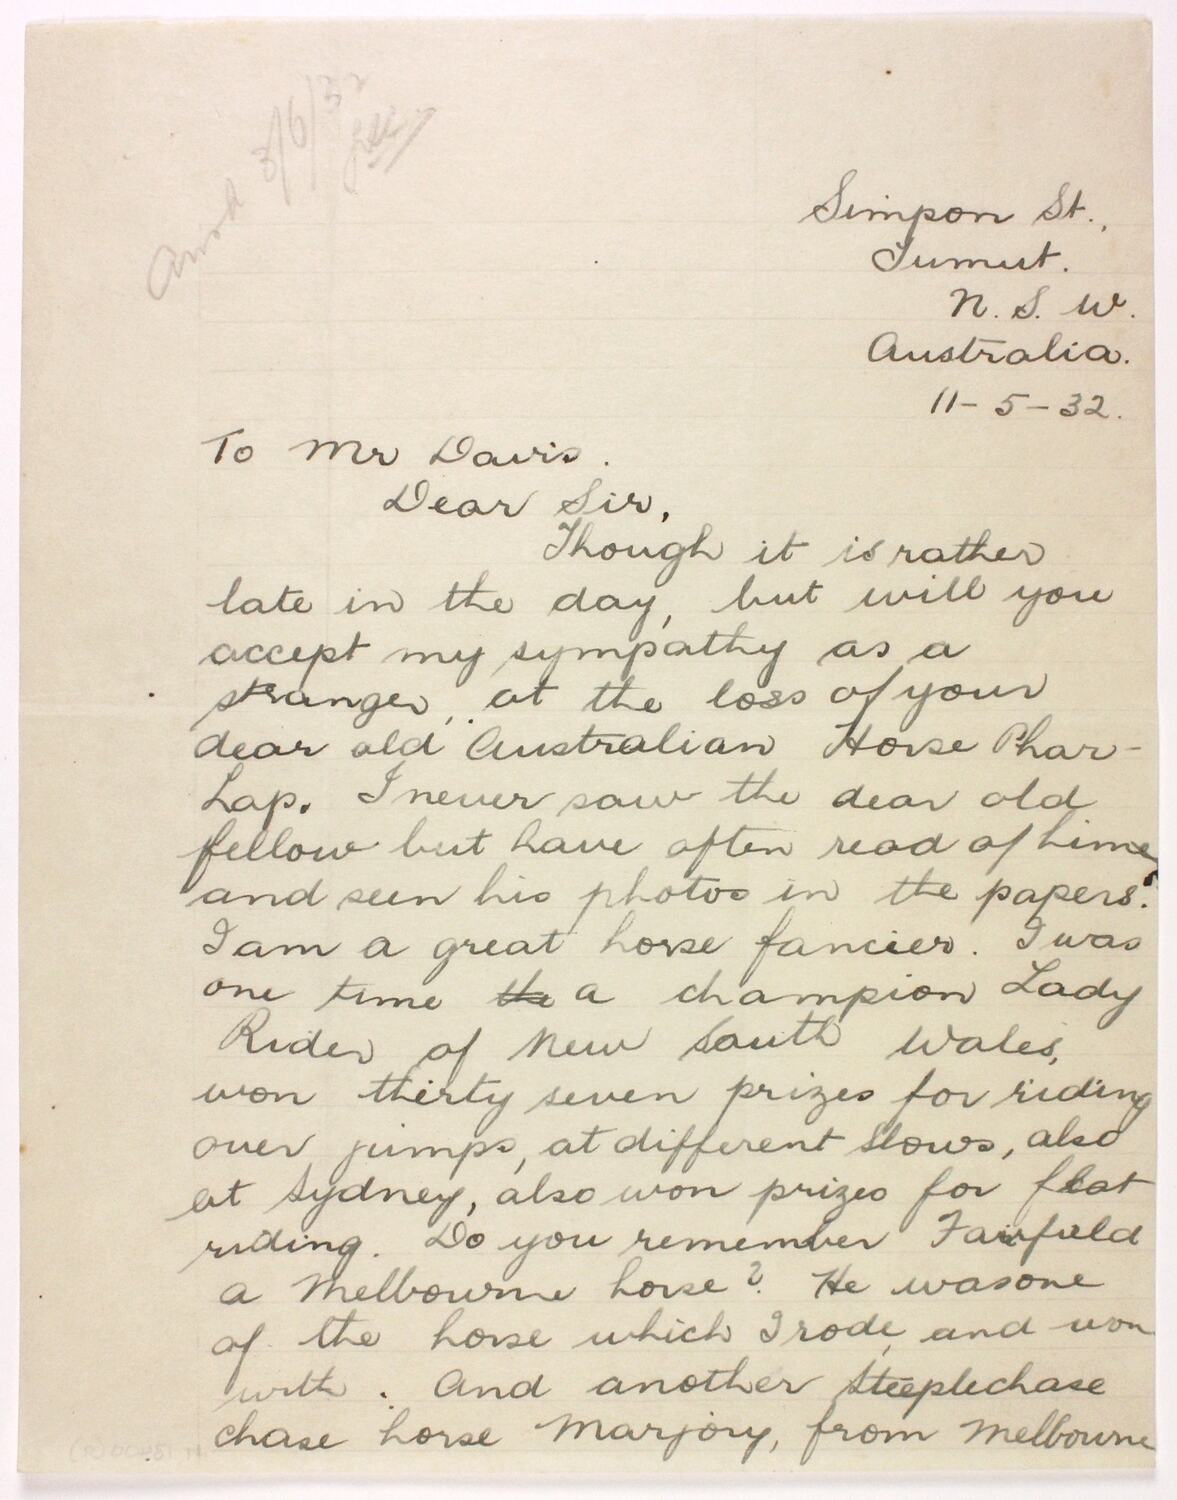 Ansd 3/6/32
Simpon St.,
Tumut.
N. S. W.
Australia.
11-5-32.
To Mr Davis.
Dear Sir,
Though it is rather
late in the day, but will you
accept my sympathy as a
stranger, at the loss of your
dear old Australian Horse Phar-
Lap. I never saw the dear old
fellow but have often read of hime
and seen his photos in the papers.
I am a great horse fancier. I was
one time the a champion Lady
Rider of New South Wales,
won thirty seven prizes for riding
over jumps, at different Shows, also
at Sydney, also won prizes for flat
riding. Do you remember Fairfield
a Melbourne horse? He was one
of the horse which I rode, and won
with. And another Steeplechase
chase horse Marjory, from Melbourne